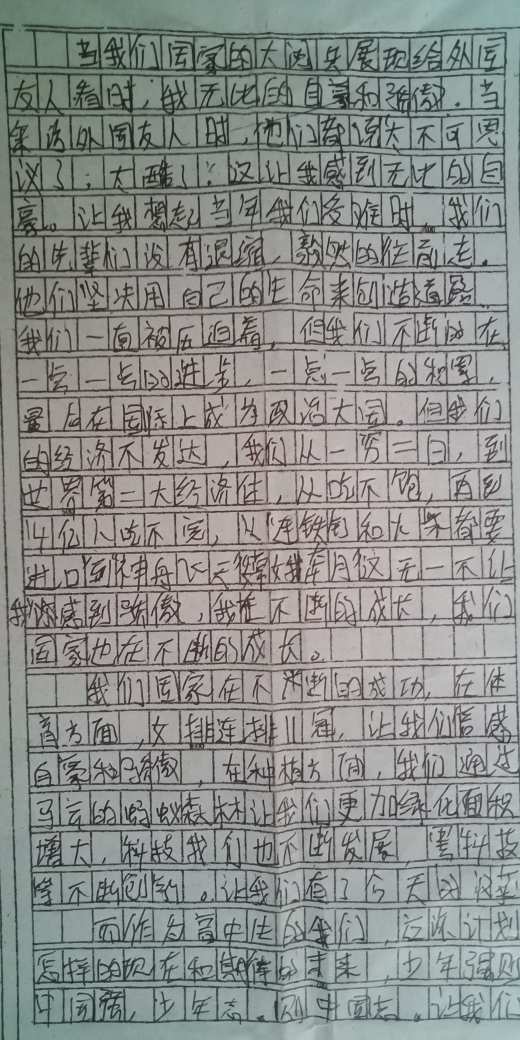 当我们国家的大阅兵展现给外国
友人看时，我无比的自豪和骄傲。当
采访外国友人时，他们都说太不可思
议了；太酷了；这让我感到无比的自
豪。让我想起当年我们受难时，我们
的先辈们没有退缩，毅然的往前走。
他们坚决用自己的生命来创造道路。
我们一直被压迫着，但我们不断的在
一点一点的进步，一点一点的积累，
最后在国际上成为政治大国。但我们
的经济不发达，我们从一穷二白，到
世界第二大经济体，从吃不饱，再到
14亿人吃不完，从连铁钉和火柴都要
进口到神舟飞天嫦娥奔月这无一不让
我深感到骄傲，我在不断的成长，我们
国家也在不断的成长。
我们国家在不断的成功，在体
育方面，女排连排11冠，让我们倍感
自豪和骄傲，在种植方面，我们通过
马云的蚂蚁森林让我们更加绿化面积
增大，科技我们也不断发展，靠科技
等不断创新。让我们有了今天的
而作为高中生的我们，应该计划
怎样的现在和期待的未来，少年强则
中国强，少年志。则中国志。让我们